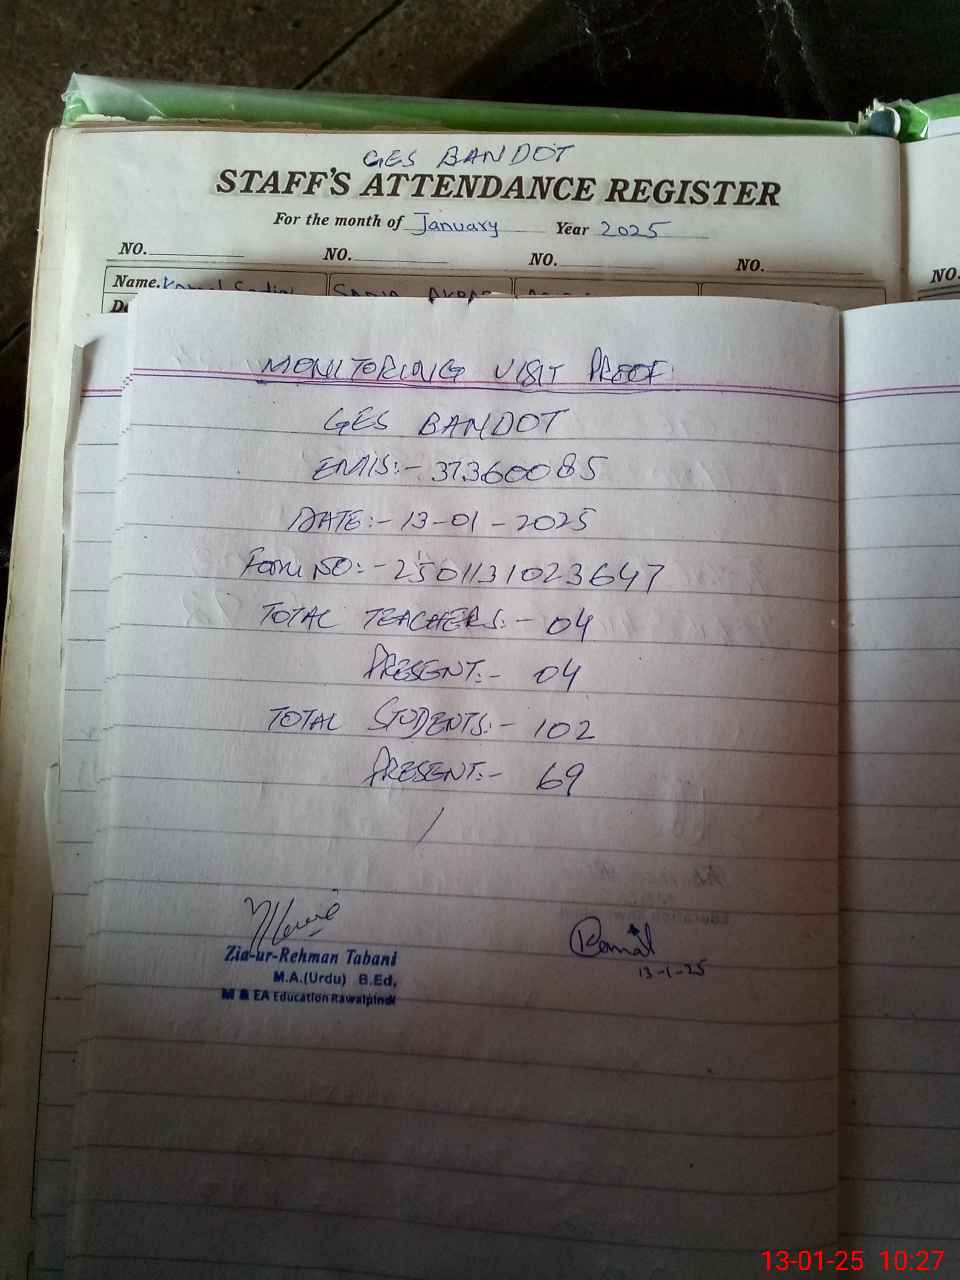 GES BANDOT
STAFF'S ATTENDANCE REGISTER
For the month of January Year 2025
NO. NO. NO. NO. NO.
Name. Kamal
MONITORING VISIT PROOF
GES BANDOT
EMIS:- 37360085
DATE:- 13-01-2025
Form NO:- 2501131023647
TOTAL TEACHERS:- 04
PRESENT:- 04
TOTAL STUDENTS:- 102
PRESENT:- 69
Zia-ur-Rehman Tabani
M.A.(Urdu) B.Ed,
M & EA Education Rawalpindi
Kamal
13-1-25
13-01-25 10:27